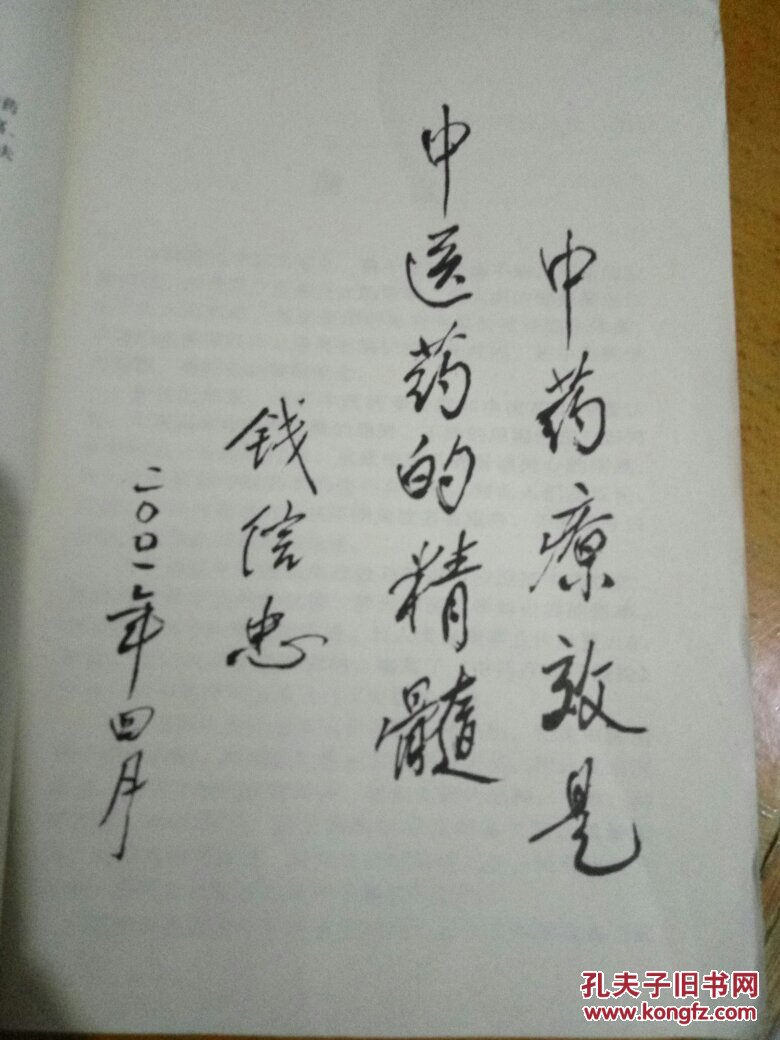 中药疗效是
中医药的精髓
钱信忠
二〇〇一年四月
药
夫
孔夫子旧书网
www.kongfz.com